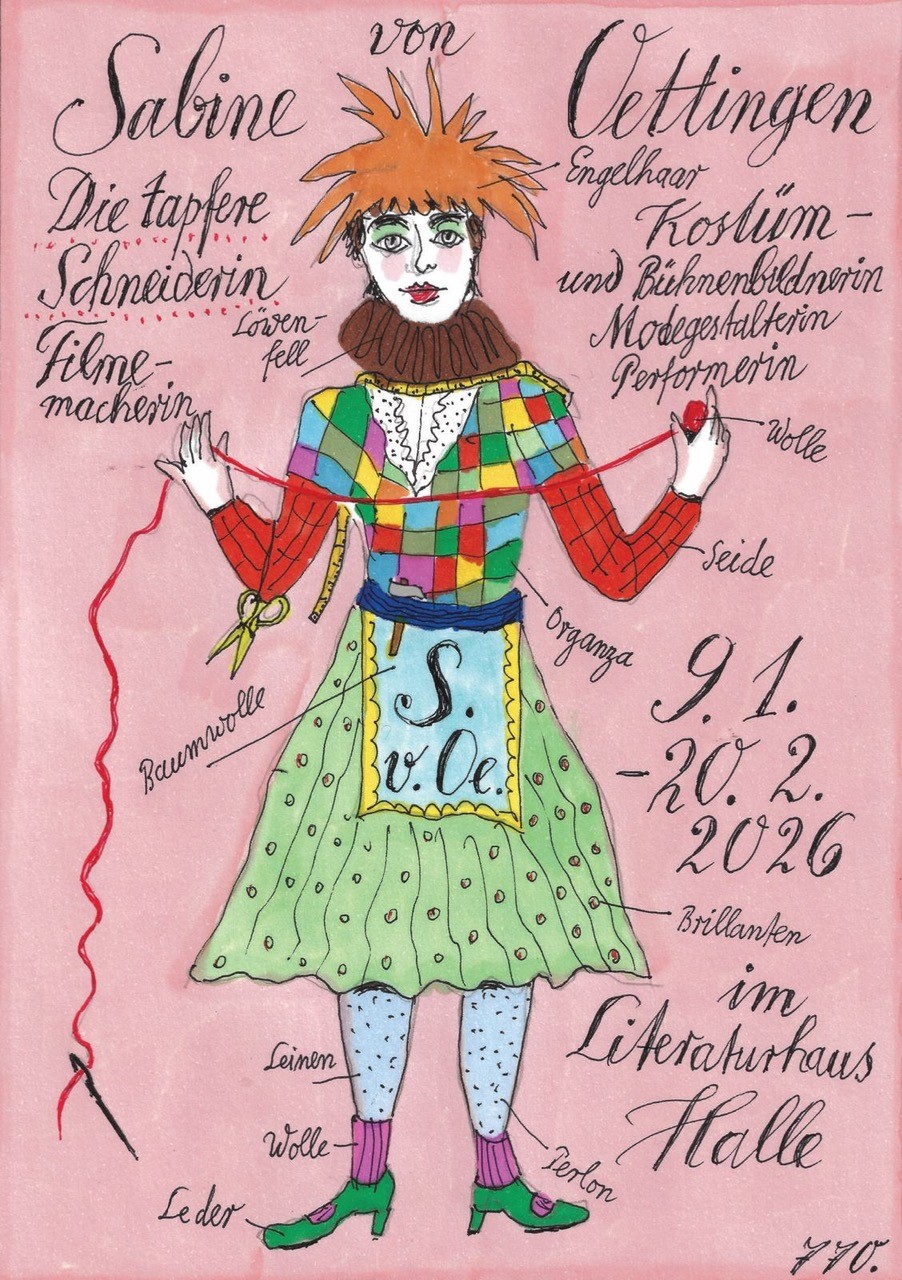 Sabine von Oettingen
Die tapfere
Schneiderin
Filme-
macherin
Engelhaar
Kostüm-
und Bühnenbildnerin
Modegestalterin
Performerin
Löwen-
fell
Wolle
Seide
Organza
Baumwolle
S.
v. Oe.
9. 1.
- 20. 2.
2026
Brillanten
im
Literaturhaus
Halle
Leinen
Wolle
Perlon
Leder
770.